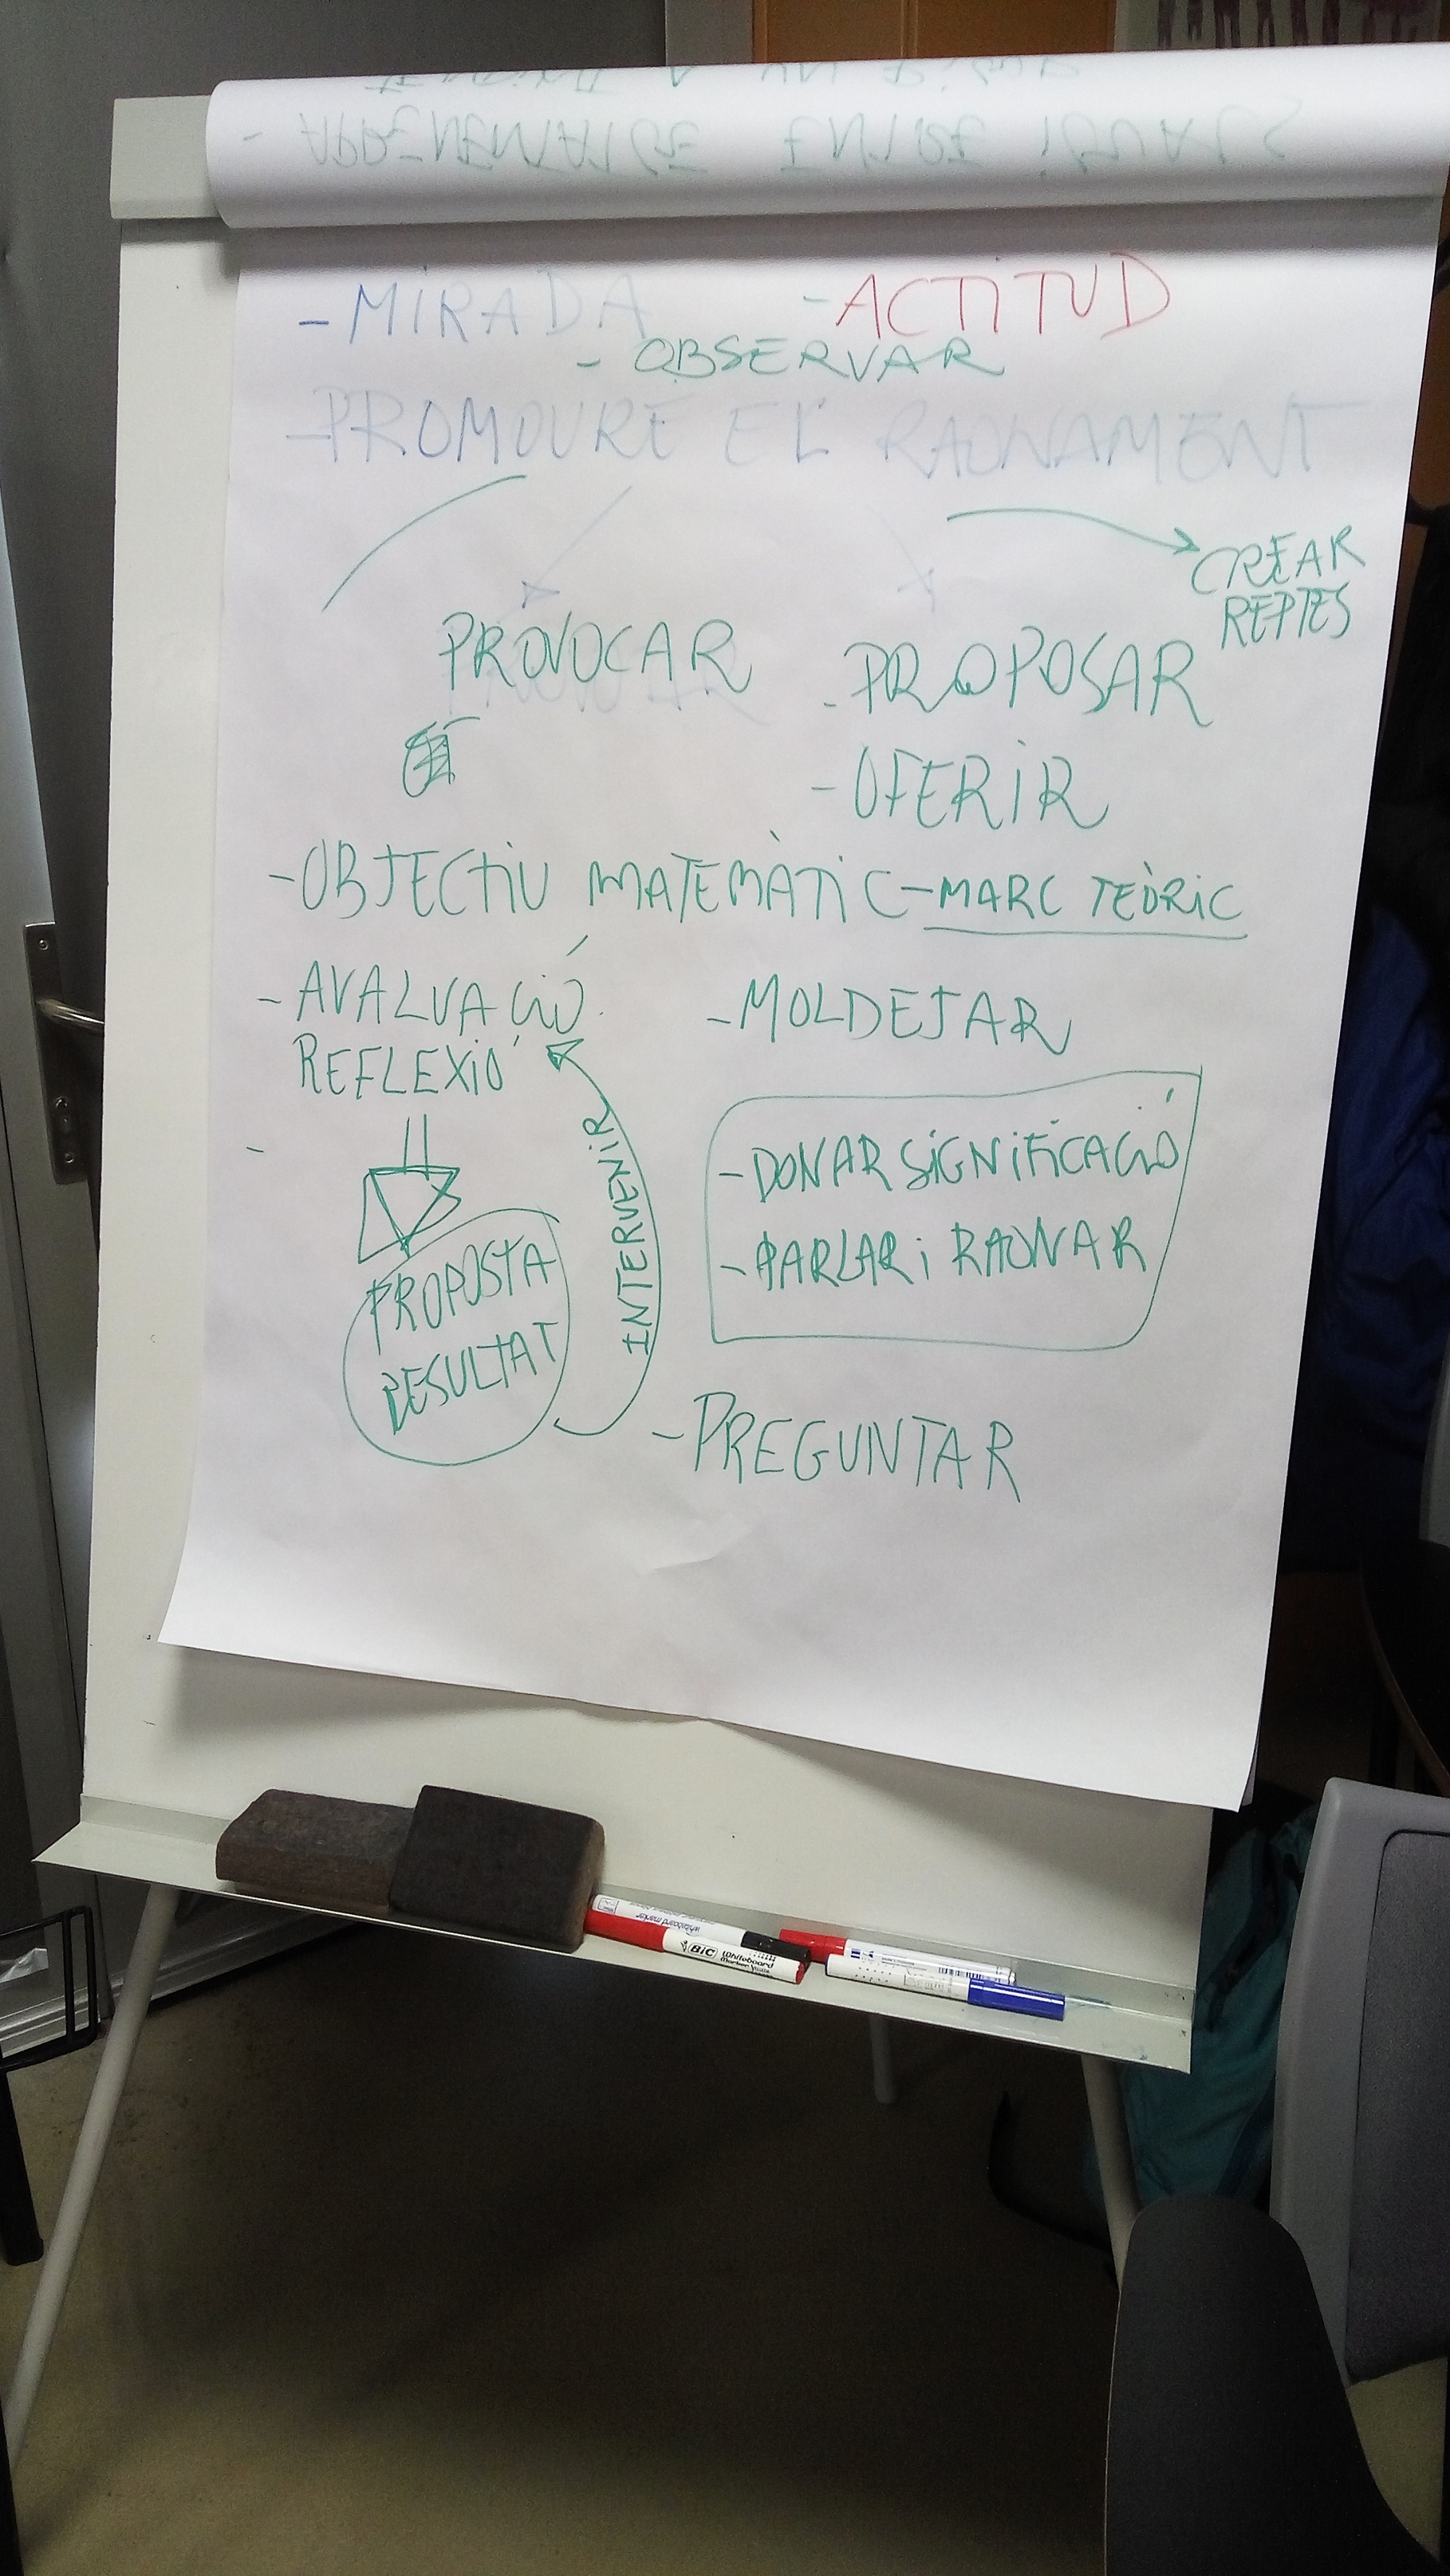 - APRENENTATGE ENTRE IGUALS
- MIRADA - ACTITUD
- OBSERVAR
- PROMOURE EL RAONAMENT
CREAR
REPTES
PROVOCAR - PROPOSAR
- OFERIR
- OBJECTIU MATEMÀTIC - MARC TEÒRIC
- AVALUACIÓ
REFLEXIÓ
- MOLDEJAR
INTERVENIR
- DONAR SIGNIFICACIÓ
- PARLAR i RAONAR
PROPOSTA
RESULTAT
- PREGUNTAR
whiteboard marker
BIC Whiteboard
Marker